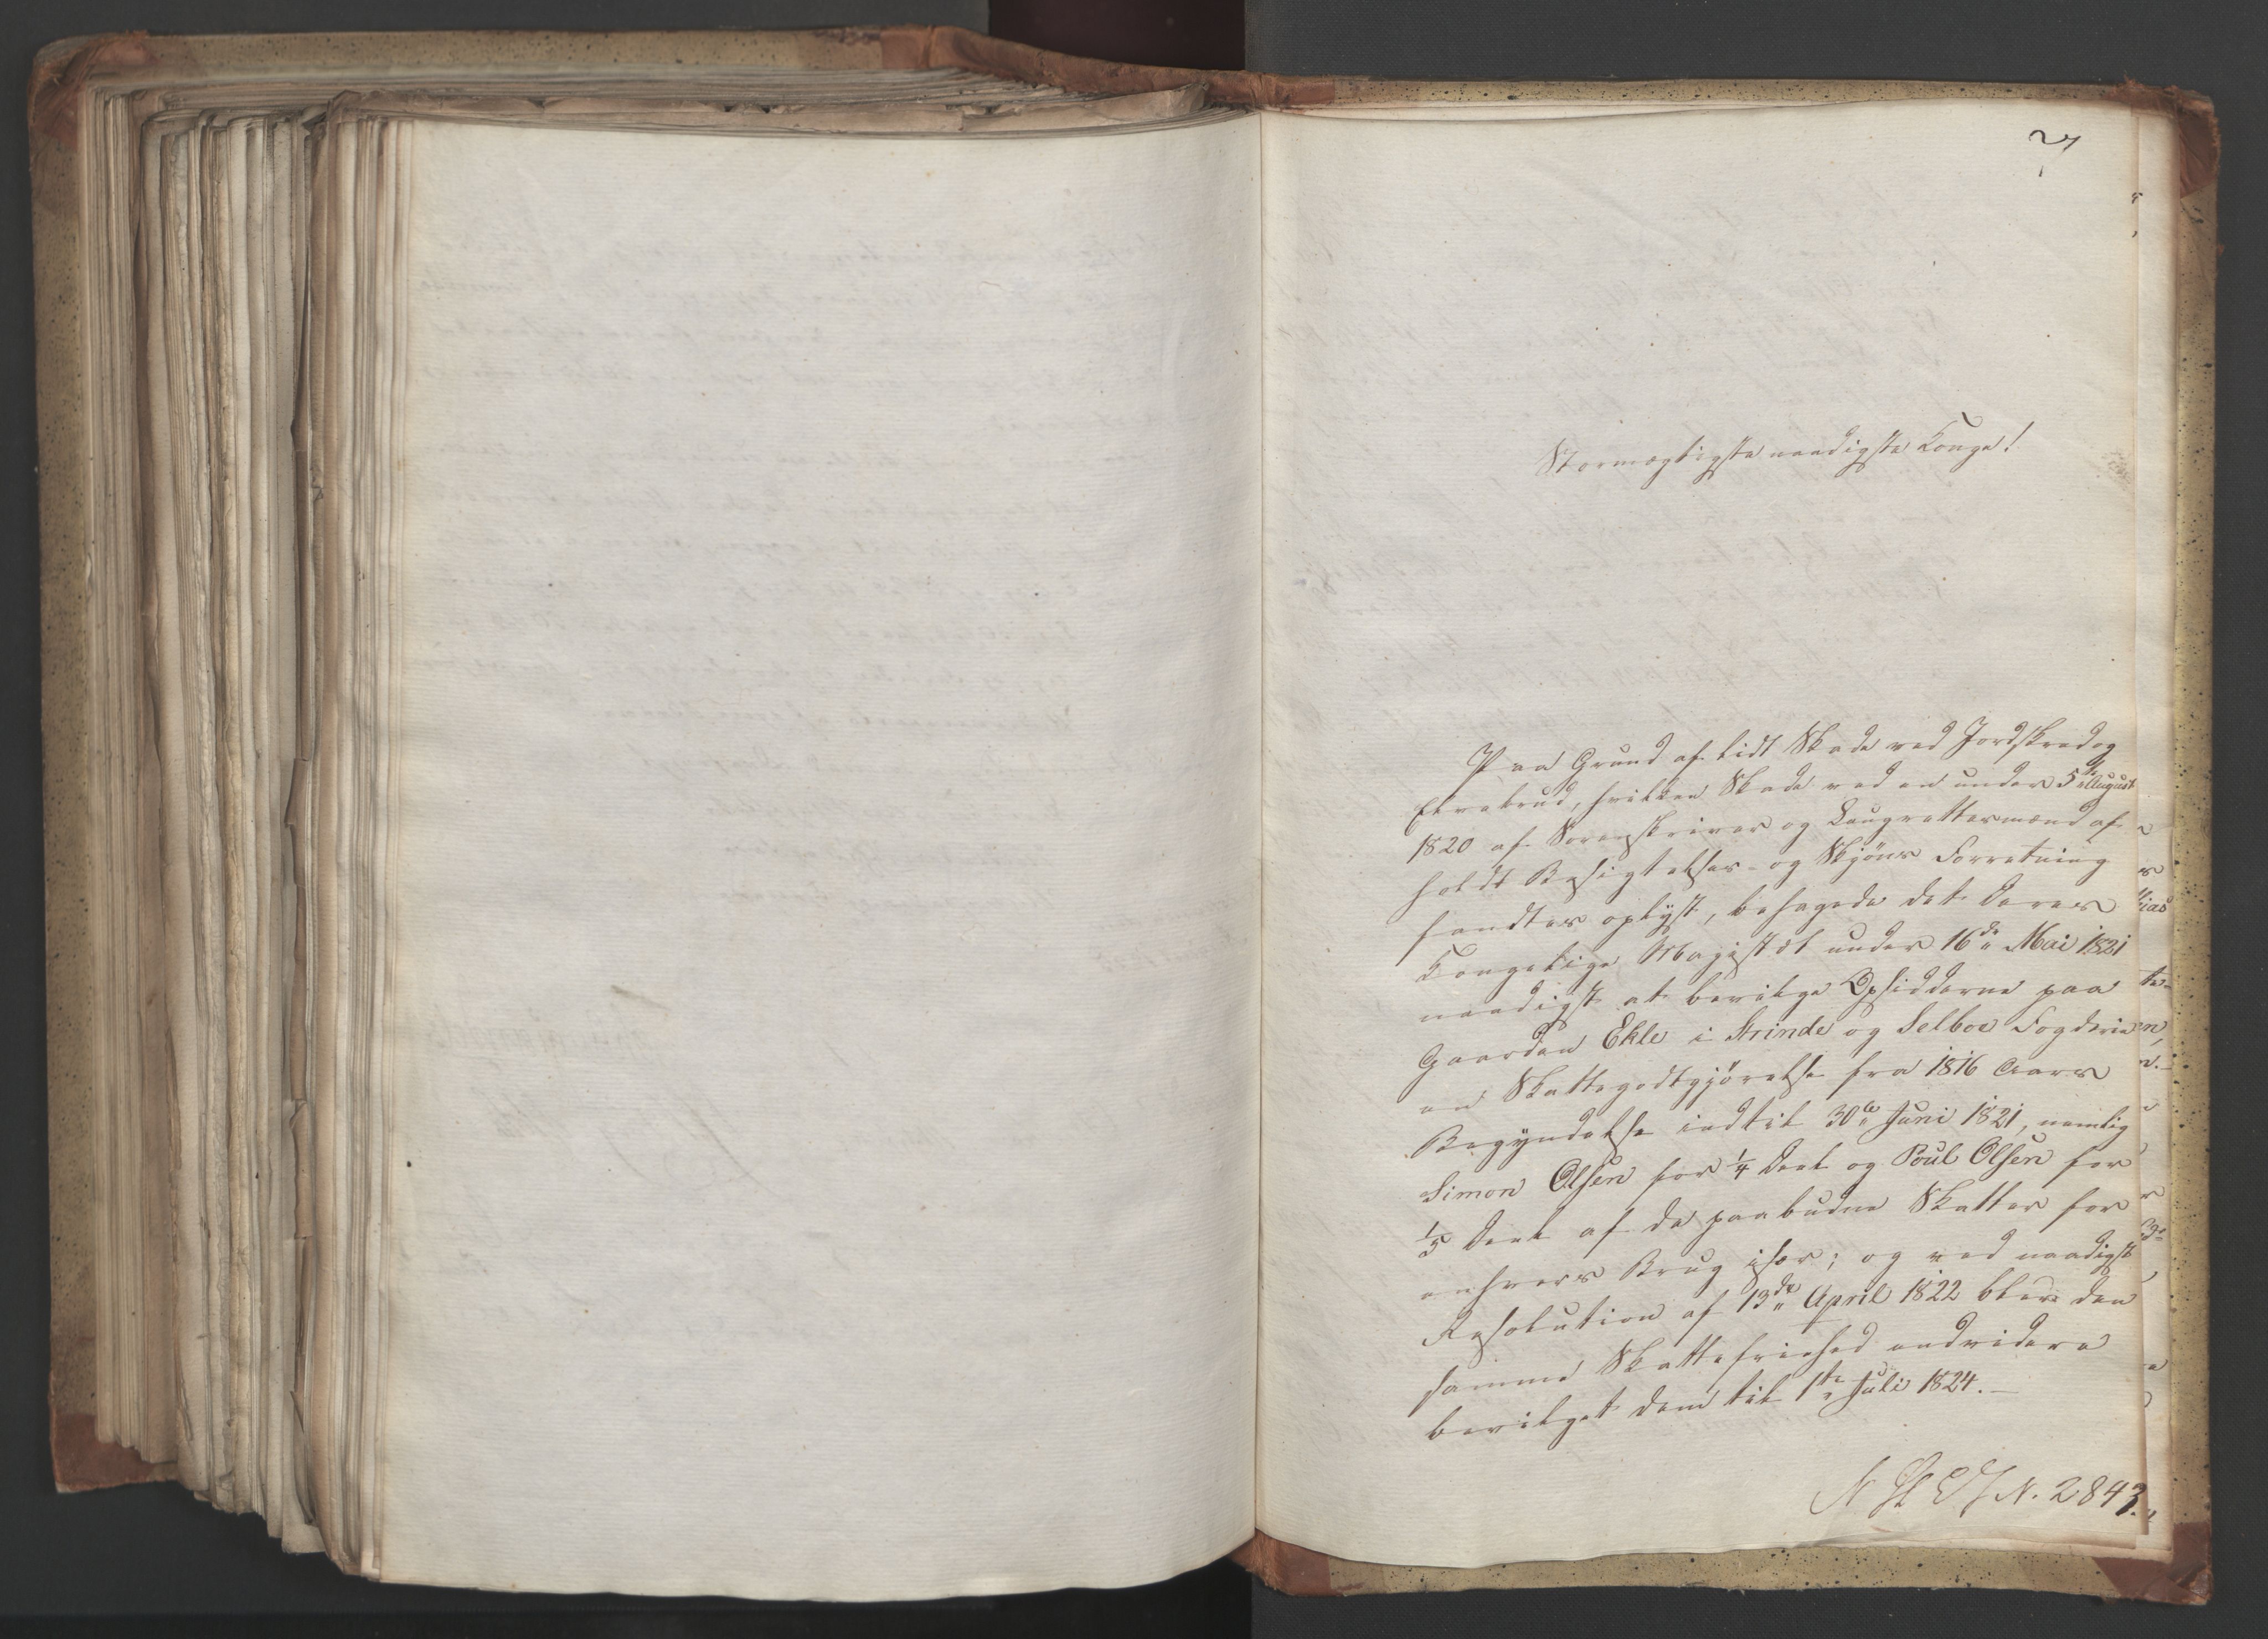 27
Stormægtigste naadigste Konge!
Paa Grund af lidt Skade ved Jordskred og
Elvebrud, hvilken Skade ved en under 5te August
1820 af Sorenskriver og Laugrettesmænd af-
holdt Besigtelses- og Skjöns Forretning
fandtes oplyst, behagede det Deres
Kongelige Majestæt under 16de Mai 1821
naadigst at bevilge Opsidderne paa
Gaarden Ekle i Strinde og Selboe Fogderie
en Skattegodtgjörelse fra 1816 Aars
Begyndelse indtil 30te Juni 1821, nemlig
Simon Olsen for 1/4 Deel og Poul Olsen for
1/5 Deel af de paabudne Skatter for
enhvers Brug især; og ved naadigst
Resolution af 13de April 1822 blev den
samme Skattefriehed endvidere
bevilget dem til 1te Juli 1824.—
N. 2843.